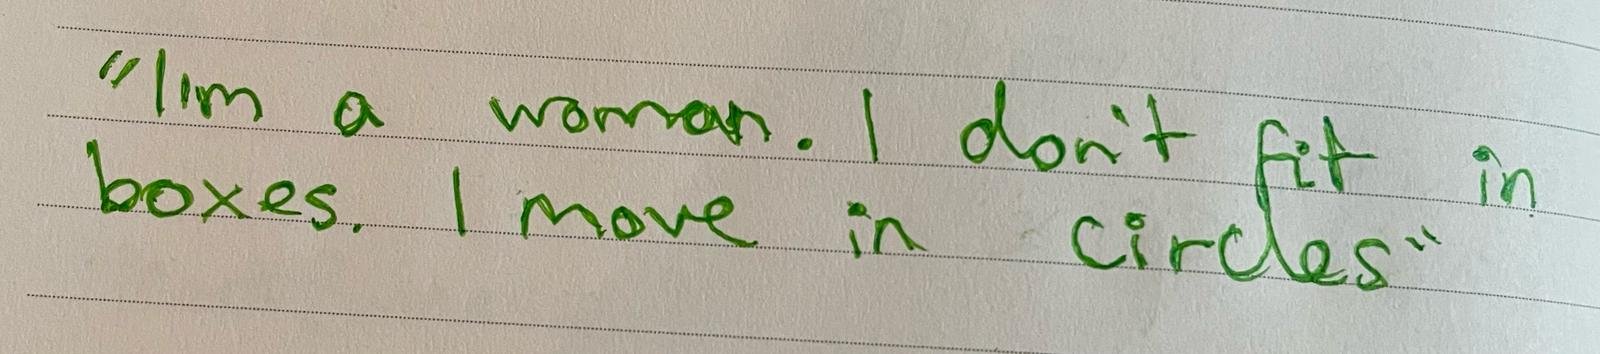 "I'm a woman. I don't fit in
boxes. I move in circles"